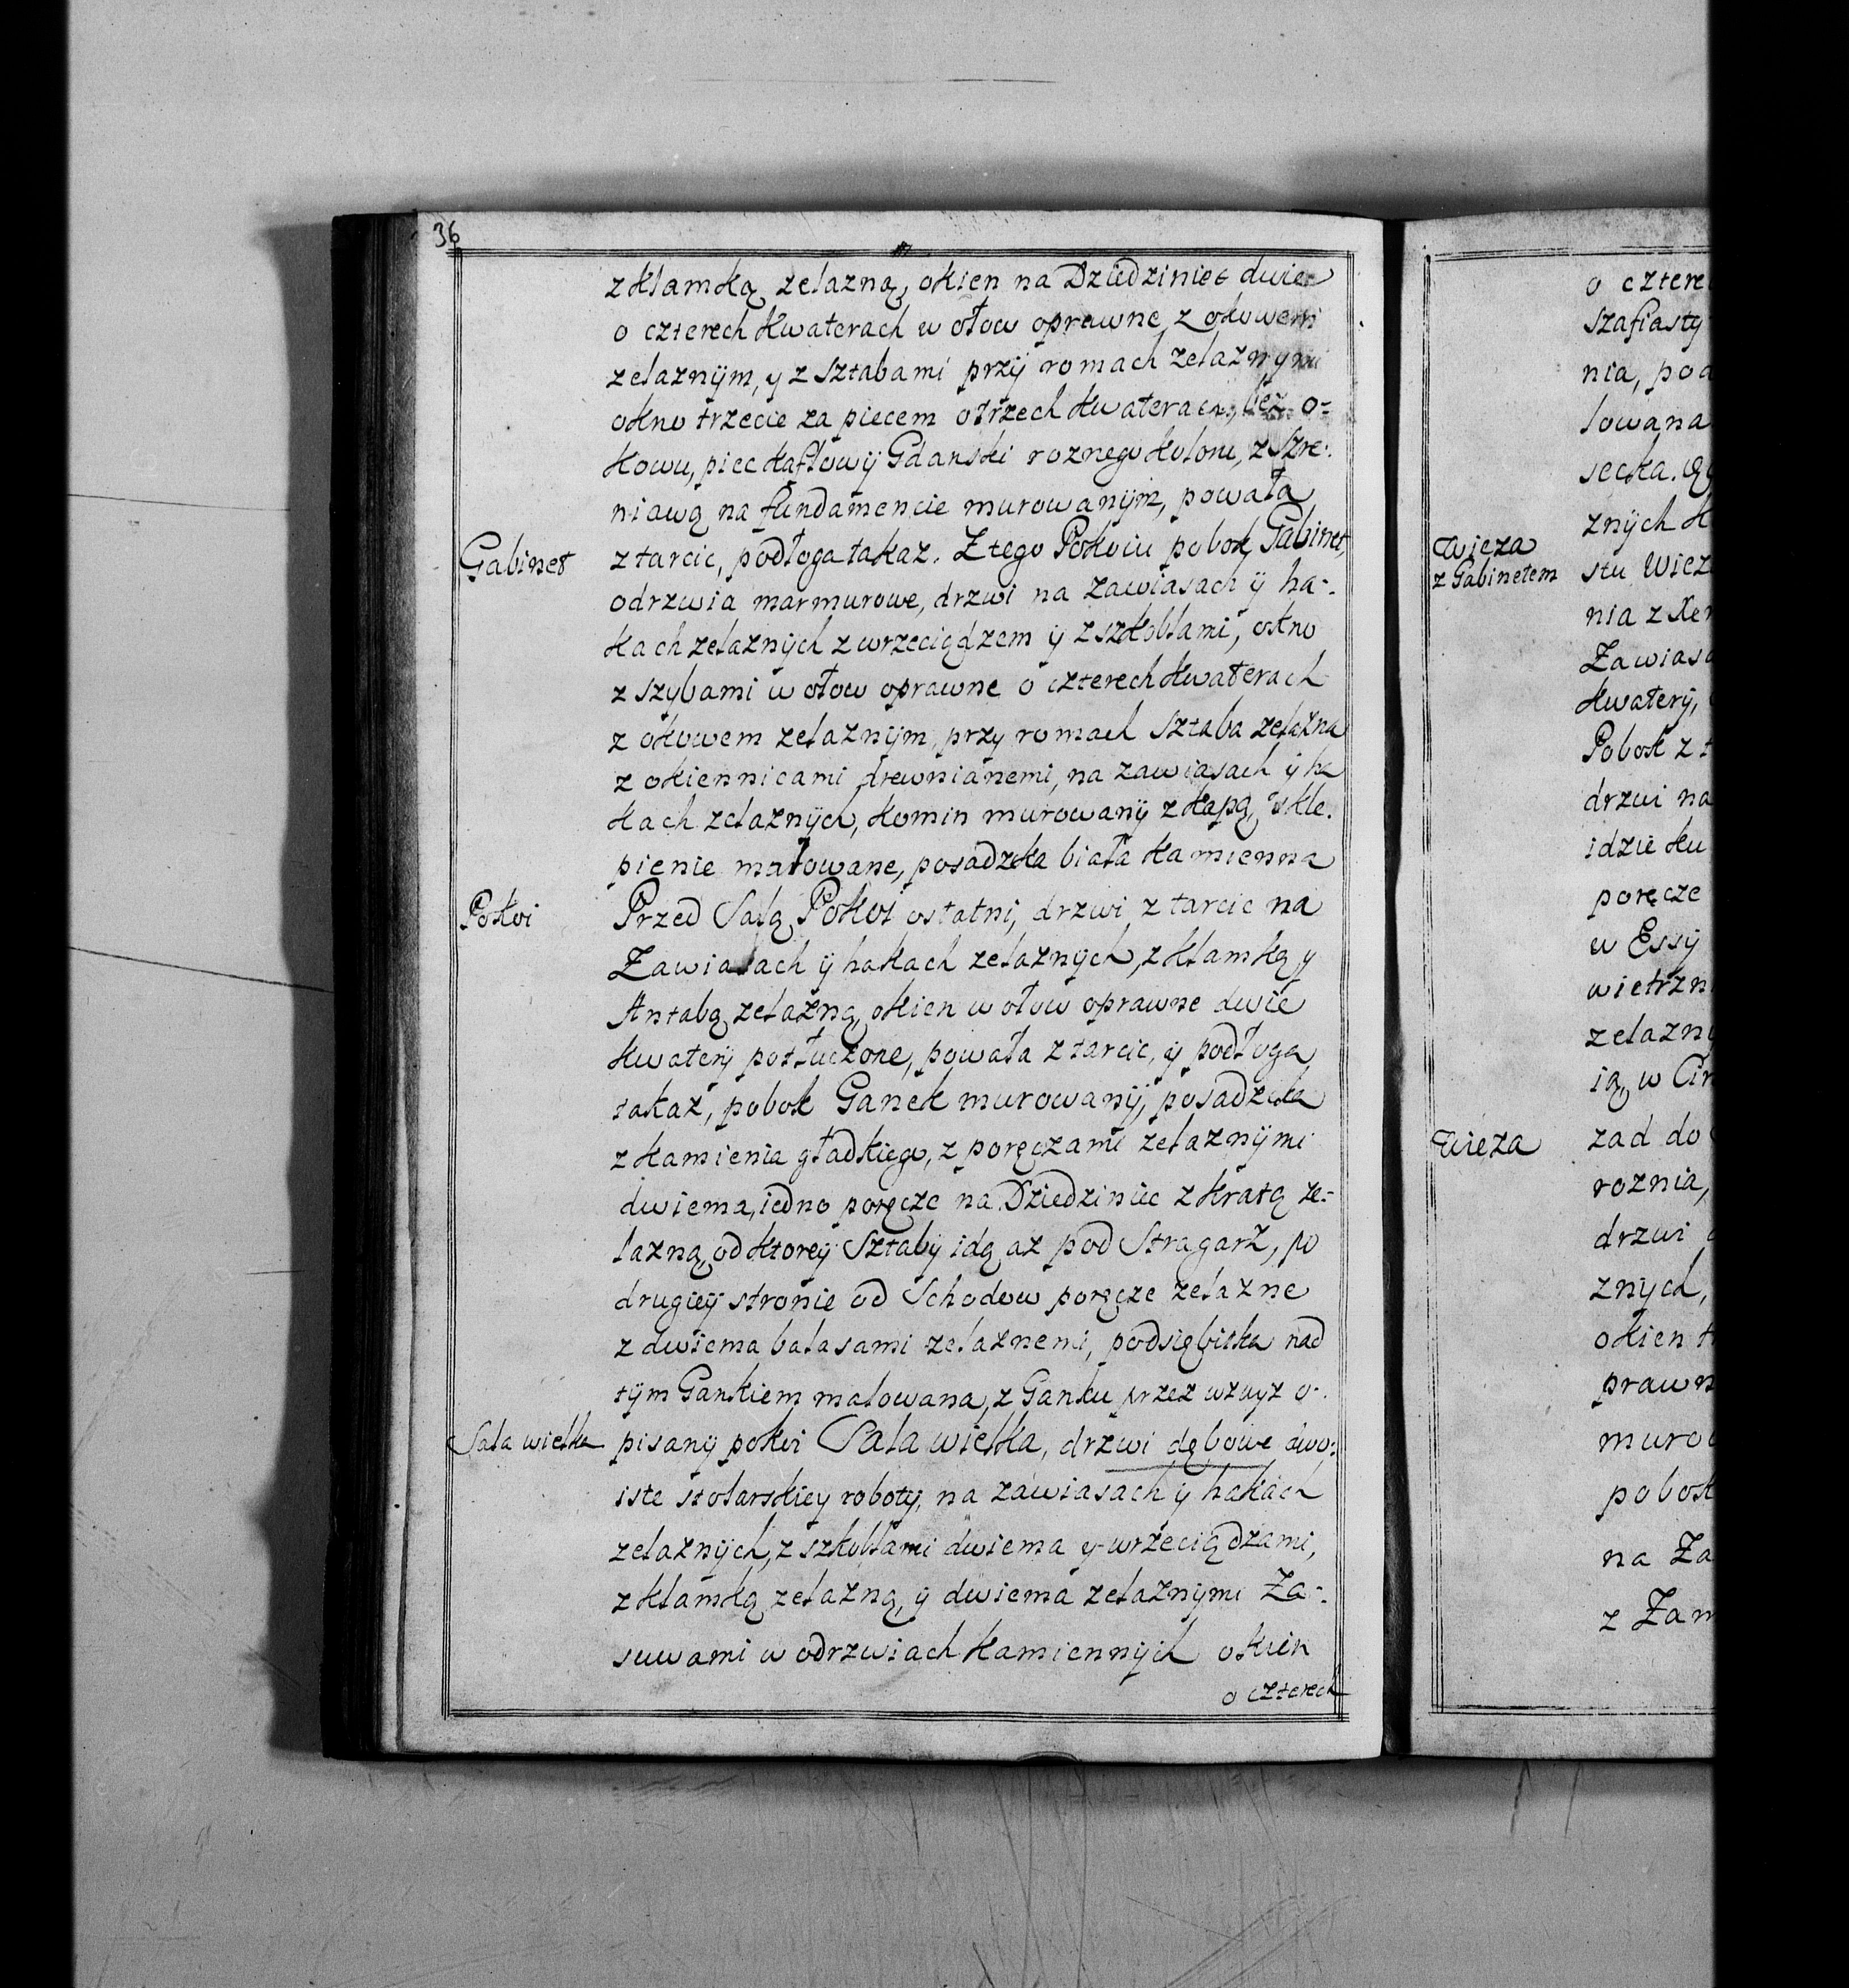 36
z klamką zelazną, okien na Dziedziniec dwie
o czterech kwaterach w ołow oprawne z okowem
zelaznÿm, y z sztabami przÿ romach zelaznymi
okno trzecie za piecem o trzech kwaterach, bez o=
kowu, piec kaflowÿ Gdanski roznego koloru, z Szre-
niawą na fundamencie murowanÿm, powała
Gabinet
z tarcic, podłoga takaz. Z tego Pokoiu pobok Gabinet,
odrzwia marmurowe, drzwi na zawiasach ÿ ha-
kach zelaznÿch z wrzeciądzem ÿ z szkoblami, okno
z szybami w ołow oprawne o czterech kwaterach
z okowem zelaznÿm, przy romach sztaba zelazna
z okiennicami drewnianemi, na zawiasach ÿ ha
kach zelaznÿch, komin murowanÿ z kapą, skle-
pienie malowane, posadzka biała kamienna
Pokoi
Przed Salą Pokoi ostatni, drzwi z tarcic na
Zawiasach ÿ hakach zelaznÿch, z klamką y
Antabą zelazną, okien w ołow oprawne dwie
kwaterÿ potłuczone, powała z tarcic, ÿ podłoga
takaz, pobok Ganek murowanÿ, posadzka
z kamienia gładkiego, z poręczami zelaznÿmi
dwiema, iedno poręcze na Dziedziniec z kratą ze=
lazną, od ktoreÿ Sztabÿ idą az pod Stragarz, po
drugieÿ stronie od Schodow poręcze zelazne
z dwiema balasami zelaznemi, podsiębitka nad
tÿm Gankiem malowana, z Ganku przez wzwyz o-
Sala wielka
pisanÿ pokoi Sala wielka, drzwi dębowe dwo-
iste stolarskiey roboty, na zawiasach ÿ hakach
zelaznÿch, z szkoblami dwiema y wrzeciądzami,
z klamką zelazną, ÿ dwiema zelaznÿmi Za-
suwami w odrzwiach kamiennÿch okien
o czterech
o cztere
szafiastÿ
nia, pod
lowana
secka.
znÿch
Wieza
z Gabinetem
stu Wiez
nia z
Zawias
kwaterÿ,
Pobok z
drzwi na
idzie ku
poręcze
w Essÿ
wietrzn
zelazn
ią, w
Wieza
zad do
roznia,
drzwi
znÿch,
okien
prawn
muro
pobok
na Za
z Zam